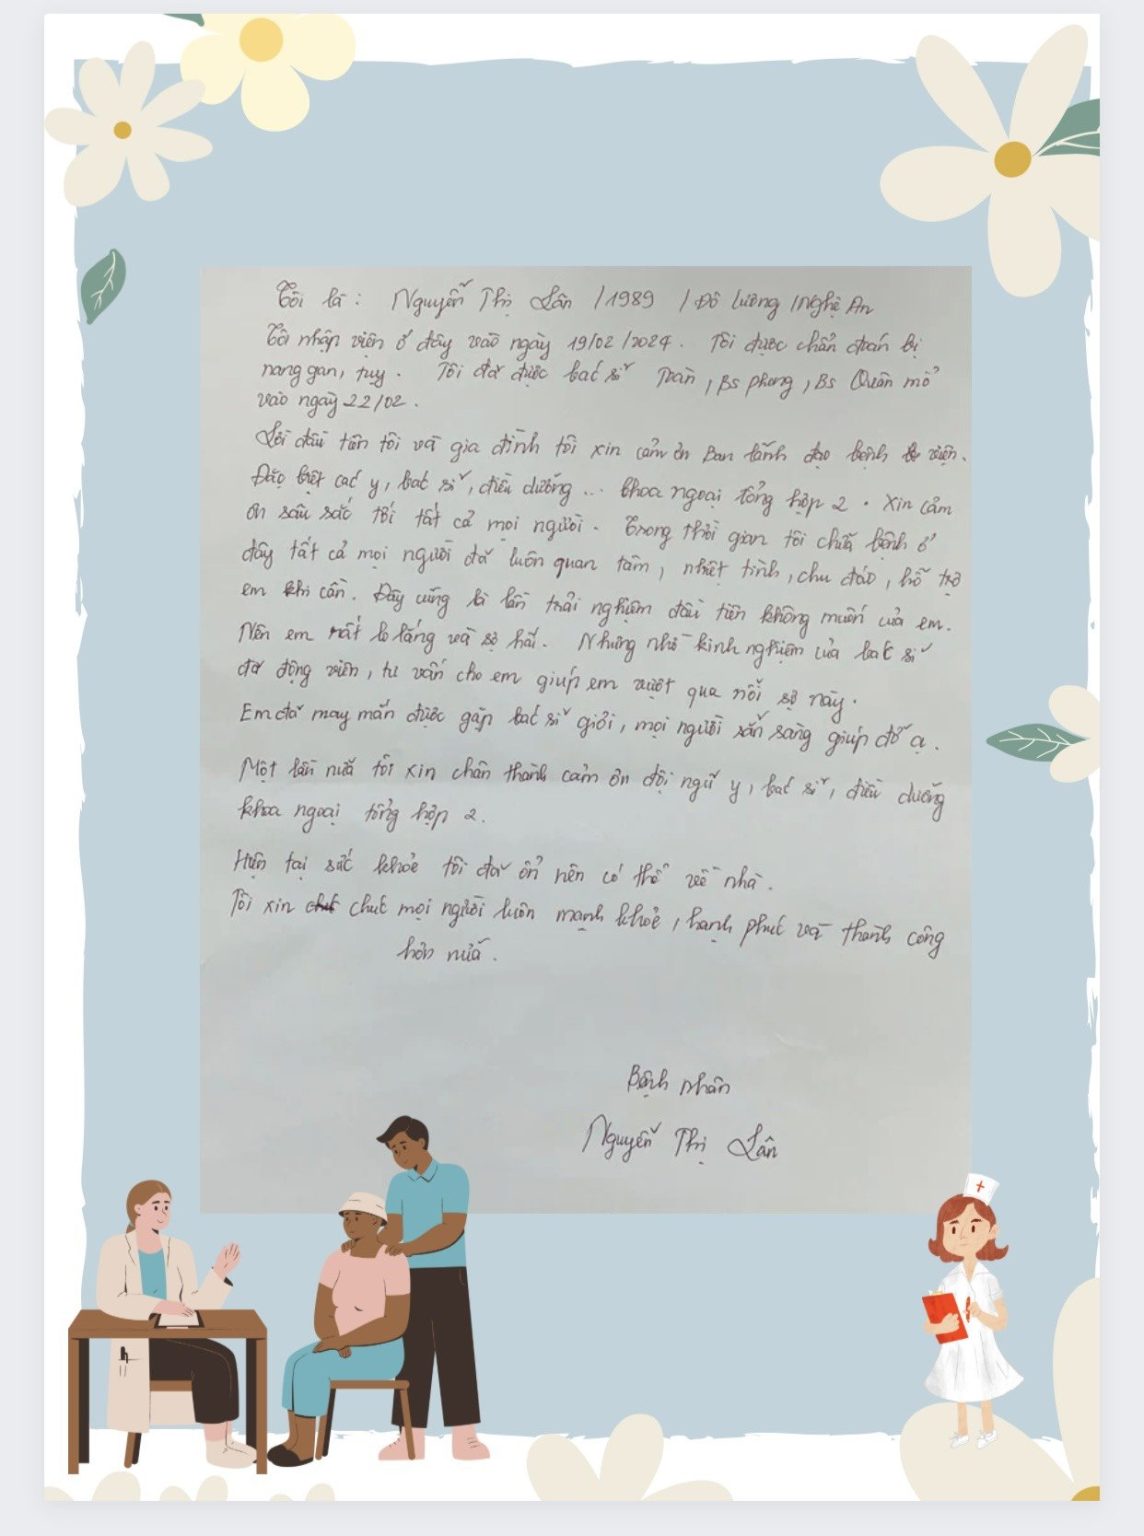 Tôi là : Nguyễn Thị Lân /1989 / Đô lương /Nghệ An
Tôi nhập viện ở đây vào ngày 19/02/2024. Tôi được chẩn đoán bị
nang gan, tụy. Tôi đã được bác sĩ Toàn, Bs phong, Bs Quân mổ
vào ngày 22/02.
Lời đầu tiên tôi và gia đình tôi xin cảm ơn Ban lãnh đạo bệnh viện.
Đặc biệt các y, bác sĩ, điều dưỡng ... khoa ngoại tổng hợp 2. Xin cảm
ơn sâu sắc tới tất cả mọi người. Trong thời gian tôi chữa bệnh ở
đây tất cả mọi người đã luôn quan tâm, nhiệt tình, chu đáo, hỗ trợ
em khi cần. Đây cũng là lần trải nghiệm đầu tiên không muốn của em.
Nên em rất lo lắng và sợ hãi. Nhưng nhờ kinh nghiệm của bác sĩ
đã động viên, tư vấn cho em giúp em vượt qua nỗi sợ này.
Em đã may mắn được gặp bác sĩ giỏi, mọi người sẵn sàng giúp đỡ ạ.
Một lần nữa tôi xin chân thành cảm ơn đội ngũ y, bác sĩ, điều dưỡng
khoa ngoại tổng hợp 2.
Hiện tại sức khỏe tôi đã ổn nên có thể về nhà.
Tôi xin chúc mọi người luôn mạnh khỏe, hạnh phúc và thành công
hơn nữa.
Bệnh nhân
Nguyễn Thị Lân